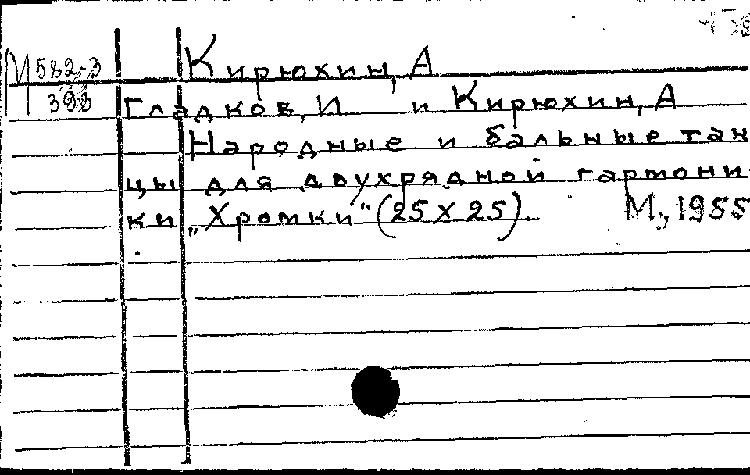 М582-3 Кирюхин, А
398 Гладков, И и Кирюхин, А
Народные и бальные тан
цы для двухрядной гармони
ки „Хромки" (25 х 25). М., 1955